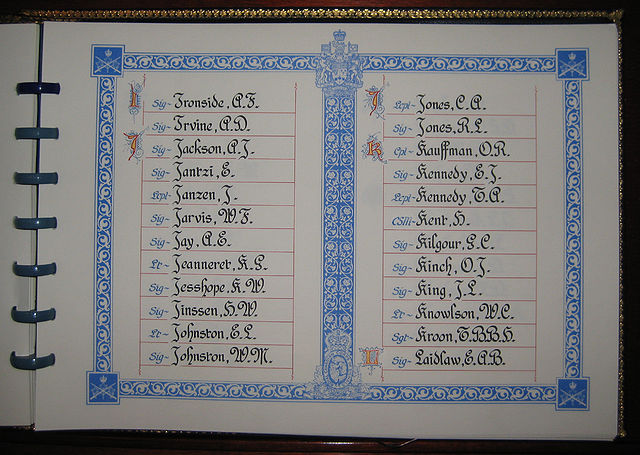 I
Sig~ Ironside, A.F.
Sig~ Irvine, A.D.
J
Sig~ Jackson, A.J.
Sig~ Jantzi, E.
Lcpl~ Janzen, J.
Sig~ Jarvis, W.F.
Sig~ Jay, A.E.
Lt~ Jeanneret, K.G.
Sig~ Jesshope, K.W.
Sig~ Jinssen, H.W.
Lt~ Johnston, E.L.
Sig~ Johnston, W.M.
J
Lcpl~ Jones, C.A.
Sig~ Jones, R.L.
K
Cpl~ Kauffman, O.R.
Sig~ Kennedy, E.J.
Lcpl~ Kennedy, T.A.
CSM~ Kent, H.
Sig~ Kilgour, G.C.
Sig~ Kinch, O.J.
Sig~ King, J.L.
Lt~ Knowlson, W.C.
Sgt~ Kroon, T.B.B.H.
L
Sig~ Laidlaw, E.A.B.